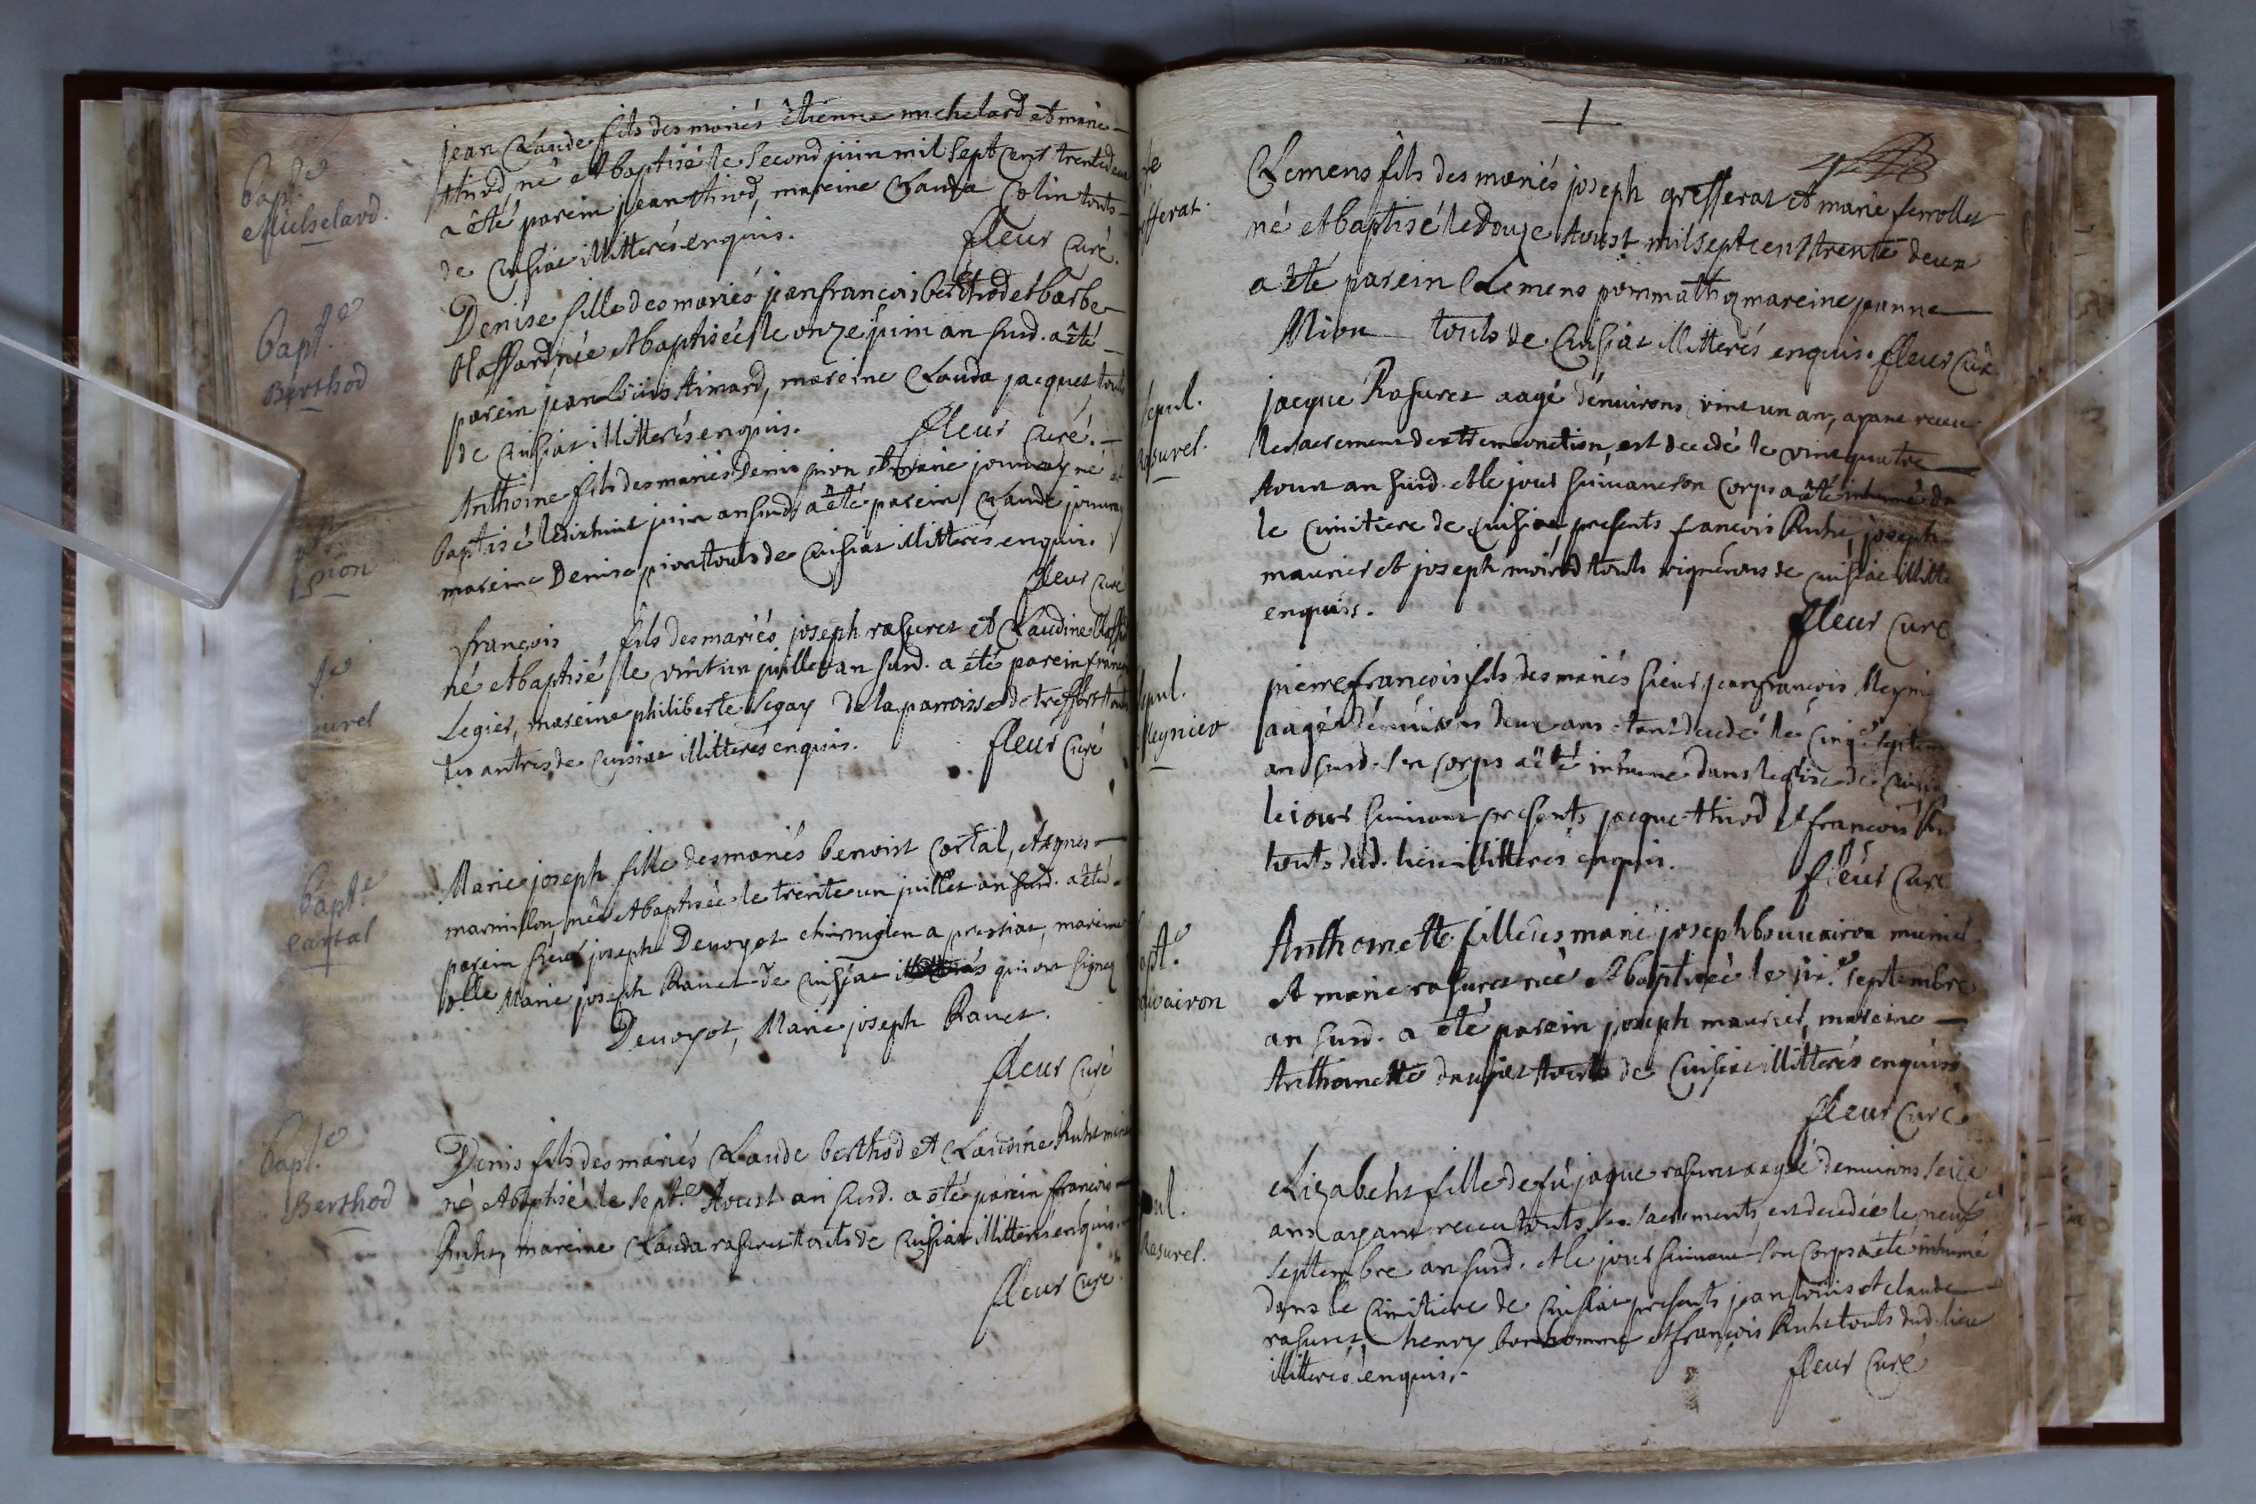 Bapt.e
Michelard.
jean Claude fils des mariés êtienne michelard et marie
thivod, né et baptisé le second juin mil sept cent trente deux
a êté parein jean thivod, mareine Clauda Colin touts
de Cuisiat illitterés enquis. fleur curé.
Bapt.e
Berthod
Denise fille des mariés jean francois berthod et barbe
Maffard née et baptisée le onze juin an susd. a êté
parein jean Loüis Aimard, mareine Clauda jacquet, touts
de Cuisiat illitterés enquis. fleur curé.
pion
Anthoine fils des mariés Denis pion et marie journay né et
baptisé le dixhuit juin an susd. a êté parein Claude journay
mareine Denise pion touts de Cuisiat illitterés enquis.
fleur curé
te
surel
françois fils des mariés joseph rasurel et Claudine
né et baptisé le vint un juillet an susd. a été parein françois
Legier, mareine philiberte Legay de la parroisse de treffort touts
les autres de Cuisiat illitterés enquis. fleur Curé
bapt.e
Cartal
Marie joseph fille des mariés benoist Cartal, et Agnes
marmillon, née et baptisée le trente un juillet an susd. a êté
parein sieur joseph Devoyot chirurgien a pressiat, mareine
Marie joseph Ravet de Cuisiat qui ont signez
Devoyot, Marie joseph Ravet.
fleur curé
bapt.e
Berthod
Denis fils des mariés Claude berthod et Claudine Ruhet
né et baptisé le sept.e Aoust an susd. a été parein francois
Ruhet, mareine Clauda rasurel touts de Cuisiat illitterés enquis.
fleur curé
te
efferat.
Clemens fils des mariés joseph grefferat et marie ferrollet
né et baptisé le Douze Aoust mil sept cent trente deux
a êté parein Clemens pommathy mareine jeanne
Nion touts de Cuisiat illitterés enquis. fleur Curé
sepul.
rasurel.
jacque Rasurel aagé d'environs vint un an, ayant receu
le sacrement d'extremeonction, est decedé le vint quatre
Aoust an susd. et le jour suivant son corps a êté inhumé da
le Cimitiere de Cuisiat, presents francois Ruhet, joseph
maurier et joseph moirod touts vignerons de cuisiat illitte
enquis. fleur Curé
sepul.
Meynier
pierre francois fils des mariés sieur jean francois Meyni
aagé d'environs deux ans etant decedé le cinq.e septem
an susd. son corps a êté inhumé dans leglise de Cuisia
le jour suivant presents jacque thivod et francois
touts dud. lieu illitterés enquis. fleur Curé
apt.e
uvairon
Anthoinette fille des mariés joseph bouvairon
et marie rasurel née et baptisée le septembre
an susd. a êté parein joseph maurier, mareine
Anthoinette touts de Cuisiat illitterés enquis
fleur Curé
pul.
Rasurel.
Elizabeht fille de fû jaque rasurel aagée denvirons seize
ans ayant receu touts ses sacrements est decedée le neuf
septembre an susd. et le jour suivant son corps a été inhumé
dans le Cimitiere de Cuisiat presents jean loüis et claude
rasurel, henry bonhomme et françois Ruhet touts dud. lieu
illitterés enquis. fleur Curé